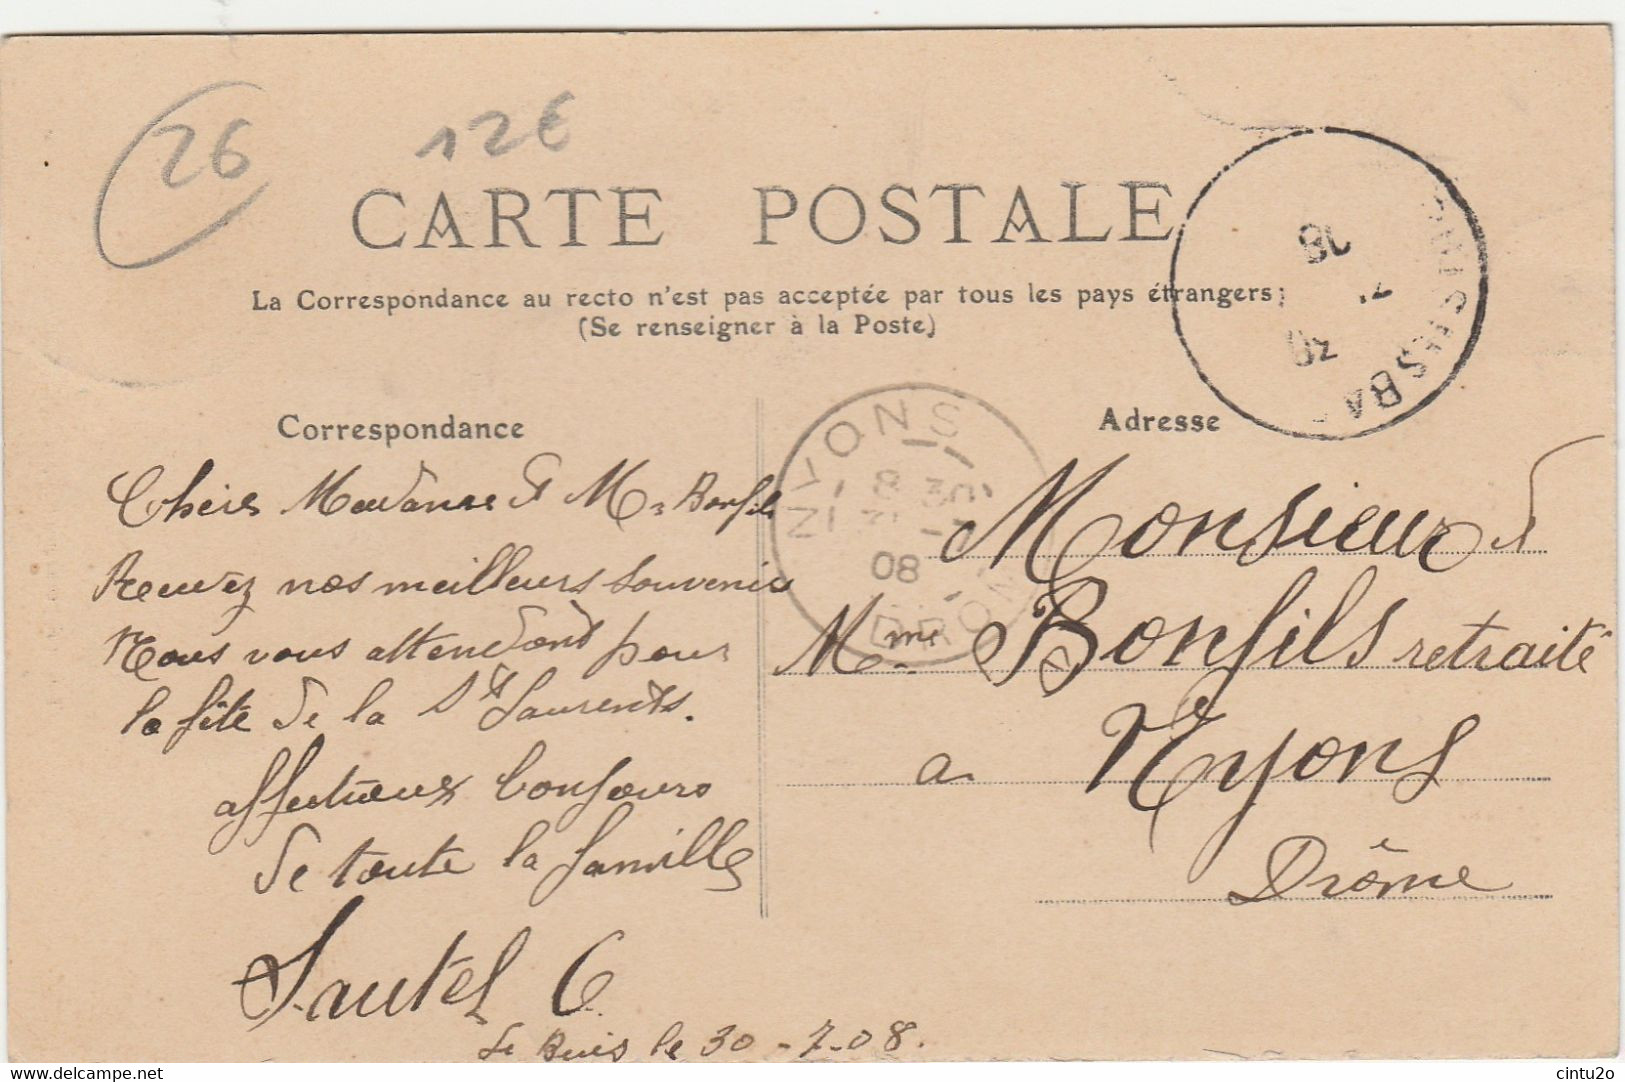 26
12€
CARTE POSTALE
La Correspondance au recto n'est pas acceptée par tous les pays étrangers;
(Se renseigner à la Poste)
30
7
08
Correspondance
Adresse
NYONS
8 30
31 -7
08
DROME
Chers Madame et Mr Bonfils
Recevez nos meilleurs souvenirs
Nous vous attendons pour
la fête de la St Laurents.
affectueux bonjours
de toute la famille
Sautel C.
Le Buis le 30 - 7 - 08.
Monsieur et
Mme Bonfils retraité
a Nyons
Drôme
www.delcampe.net
cintu2o